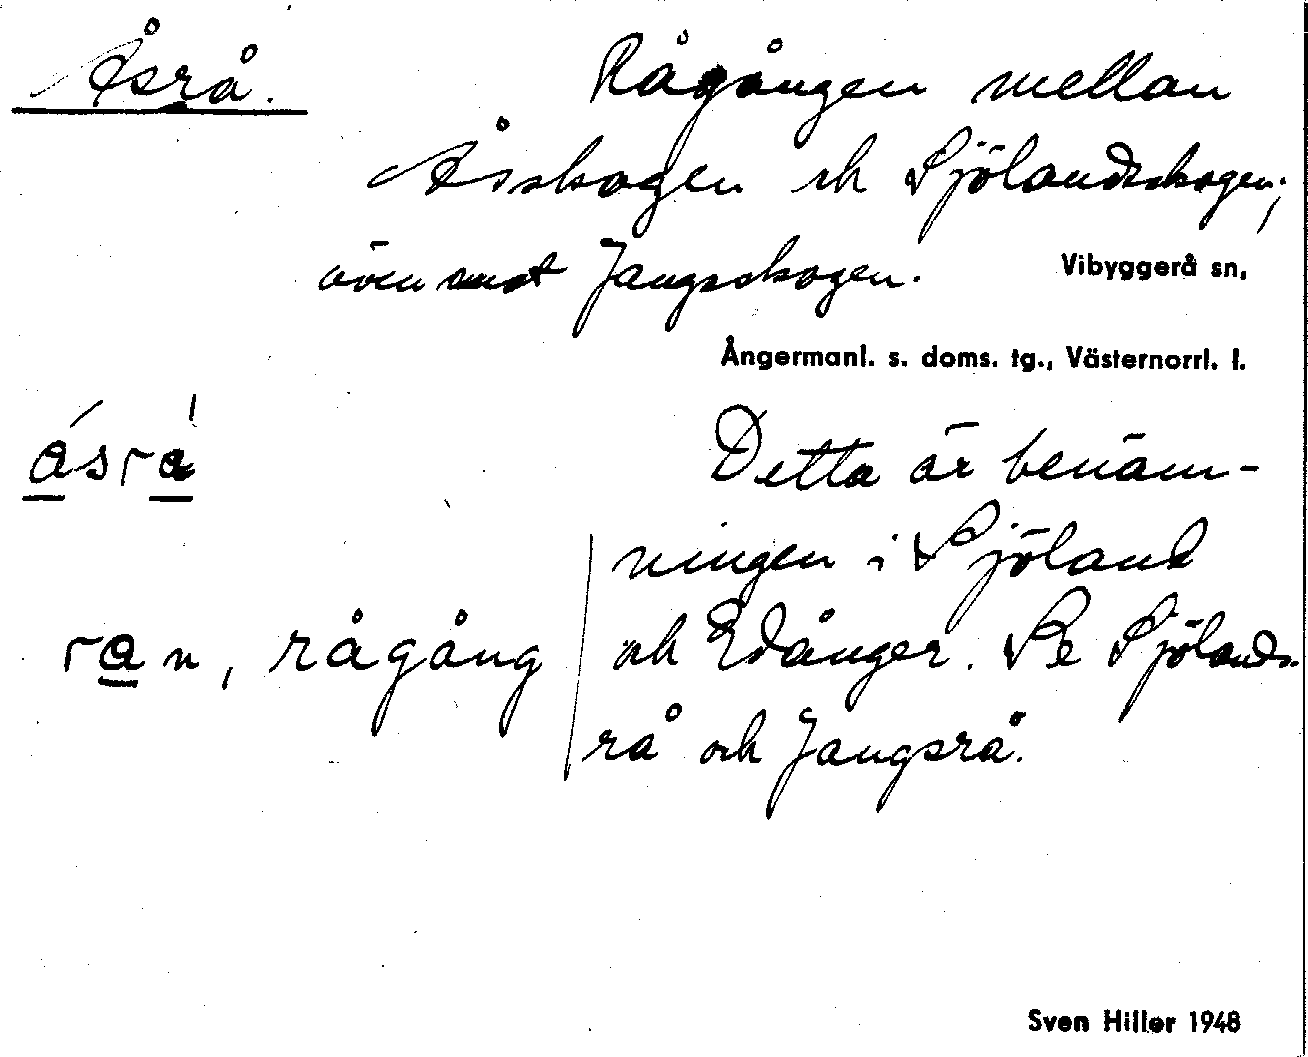 Åsrå.
Rågången mellan
Åsskogen och Sjölandsskogen;
även mot Jangsskogen.
Vibyggerå sn,
Ångermanl. s. doms. tg., Västernorrl. l.
ásrà
Detta är benäm-
ningen i Sjöland
ran, rågång
och Edånger. Se Sjölands-
rå och Jangsrå.
Sven Hiller 1948